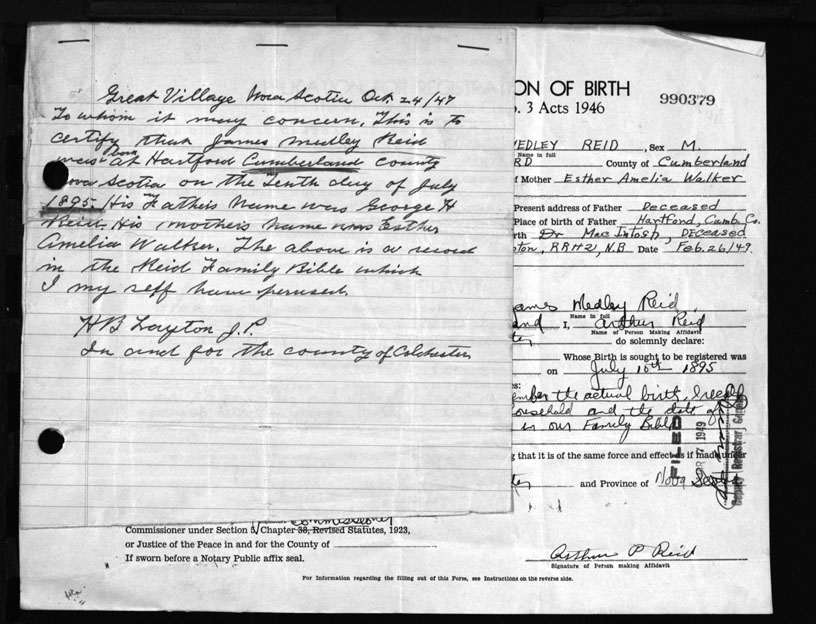 Great Village Nova Scotia Oct. 24/47
To whom it may concern. This is to
certify that James Medley Reid
was born at Hartford Cumberland county
Nova Scotia on the Tenth day of July
1895. His Fathers Name was George H
Reid. His mothers Name was Esther
Amelia Walker. The above is a record
in the Reid Family Bible which
I my self have perused.
H B Layton J.P.
In and for the county of Colchester
ON OF BIRTH
. 3 Acts 1946
990379
MEDLEY REID, Sex M.
Name in full
RD County of Cumberland
f Mother Esther Amelia Walker
Present address of Father Deceased
Place of birth of Father Hartford, Cumb. Co.
rth Dr MacIntosh, DECEASED
ton, RRH2, N.B Date Feb. 26/49.
James Medley Reid
Name in full
and I, Arthur Reid
Name of Person Making Affidavit
do solemnly declare:
Whose Birth is sought to be registered was
on July 10th 1895
the actual birth,
ousehold and the date of
is in our Family Bible
g that it is of the same force and effect as if made under
and Province of Nova Scotia
FILED
1949
Deputy Registrar General
commissioner
Commissioner under Section 5, Chapter 38, Revised Statutes, 1923,
or Justice of the Peace in and for the County of
If sworn before a Notary Public affix seal.
Arthur P Reid
Signature of Person making Affidavit
For Information regarding the filling out of this Form, see Instructions on the reverse side.